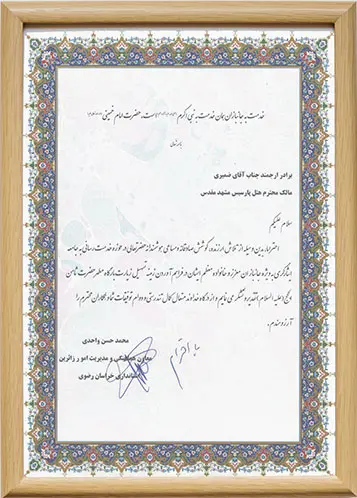 خدمت به جانبازان همان خدمت به نبی اکرم است. حضرت امام خمینی
برادر ارجمند جناب آقای ضمیری
مالک محترم هتل پارسیس مشهد مقدس
سلام علیکم
احتراماً بدین وسیله از تلاش ارزنده، کوشش صادقانه و مساعی هوشمندانه حضرتعالی در حوزه خدمت رسانی به جامعه
ایثارگری به ویژه جانبازان معزز و خانواده معظم ایشان در فراهم آوردن زمینه تسهیل زیارت بارگاه مطهر حضرت ثامن
الحجج (علیه السلام) تقدیر و تشکر می نمایم و از درگاه خداوند متعال کمال تندرستی و دوام توفیقات شما و همکاران محترم را
آرزومندم.
با احترام
محمد حسن واحدی
معاون هماهنگی و مدیریت امور زائرین
استانداری خراسان رضوی